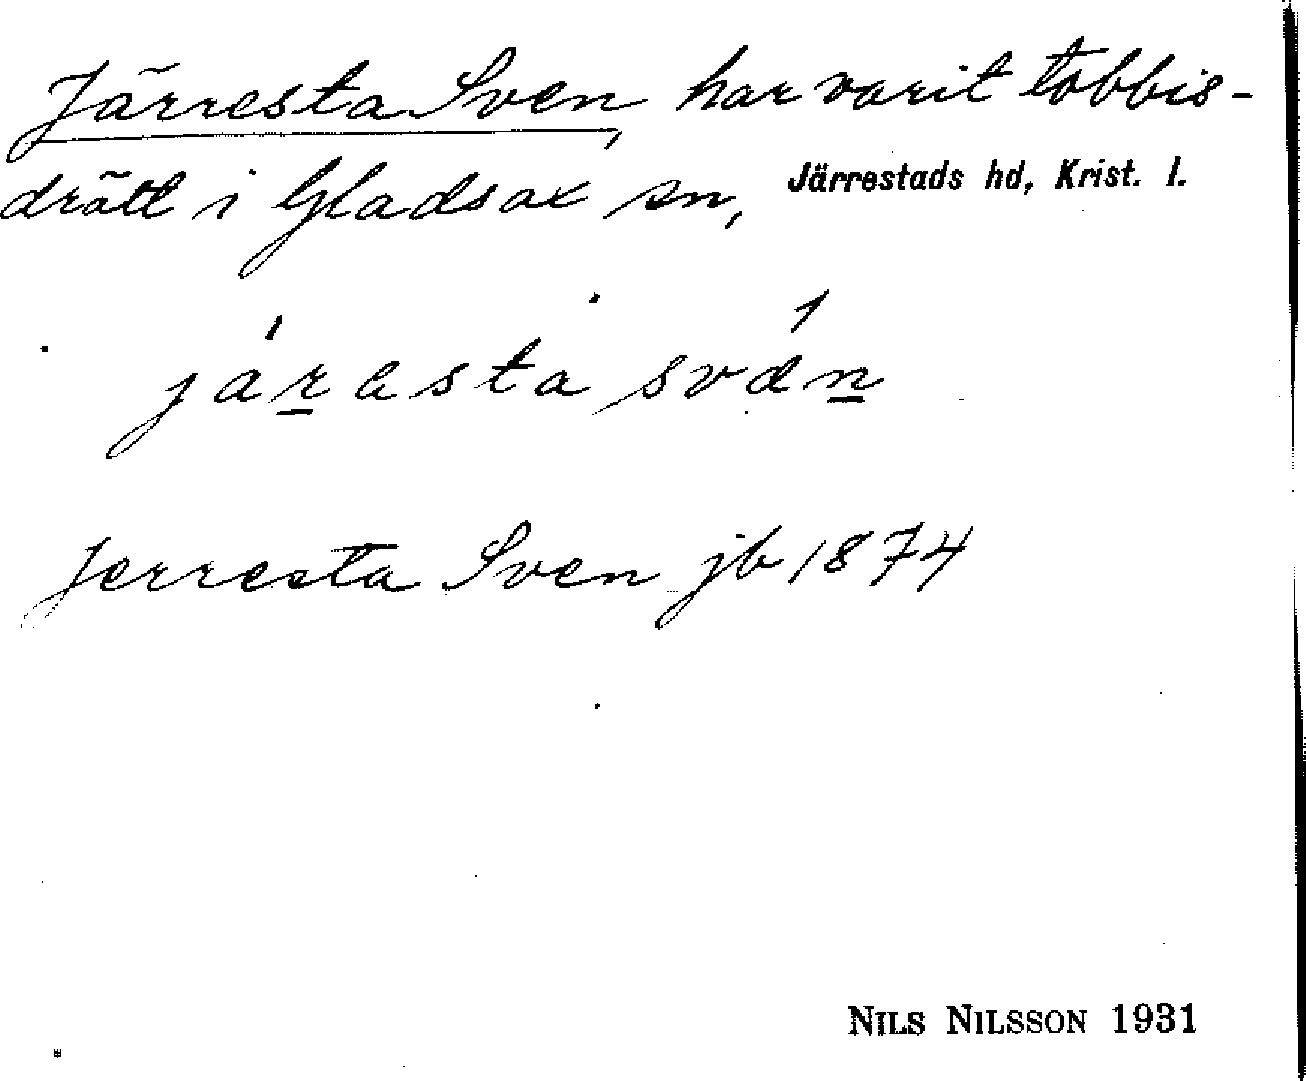 Järresta Sven, har varit tobbis-
drätt i Gladsax sn, Järrestads hd, Krist. l.
járasta svǽn
Jerresta Sven jb 1874
NILS NILSSON 1931